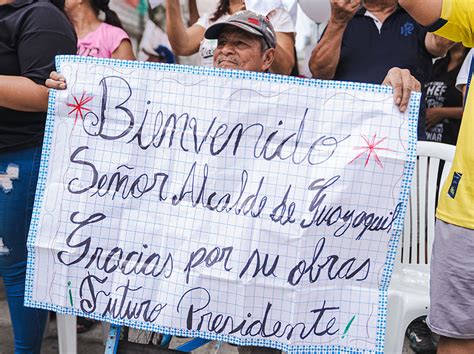 Bienvenido
Señor Alcalde de Guayaquil
Gracias por su obras
¡Futuro Presidente!